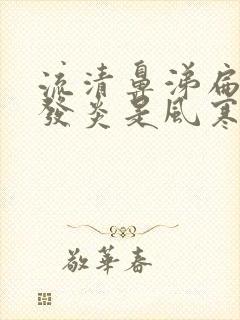 流清鼻涕扁
發炎是風寒
敬華春